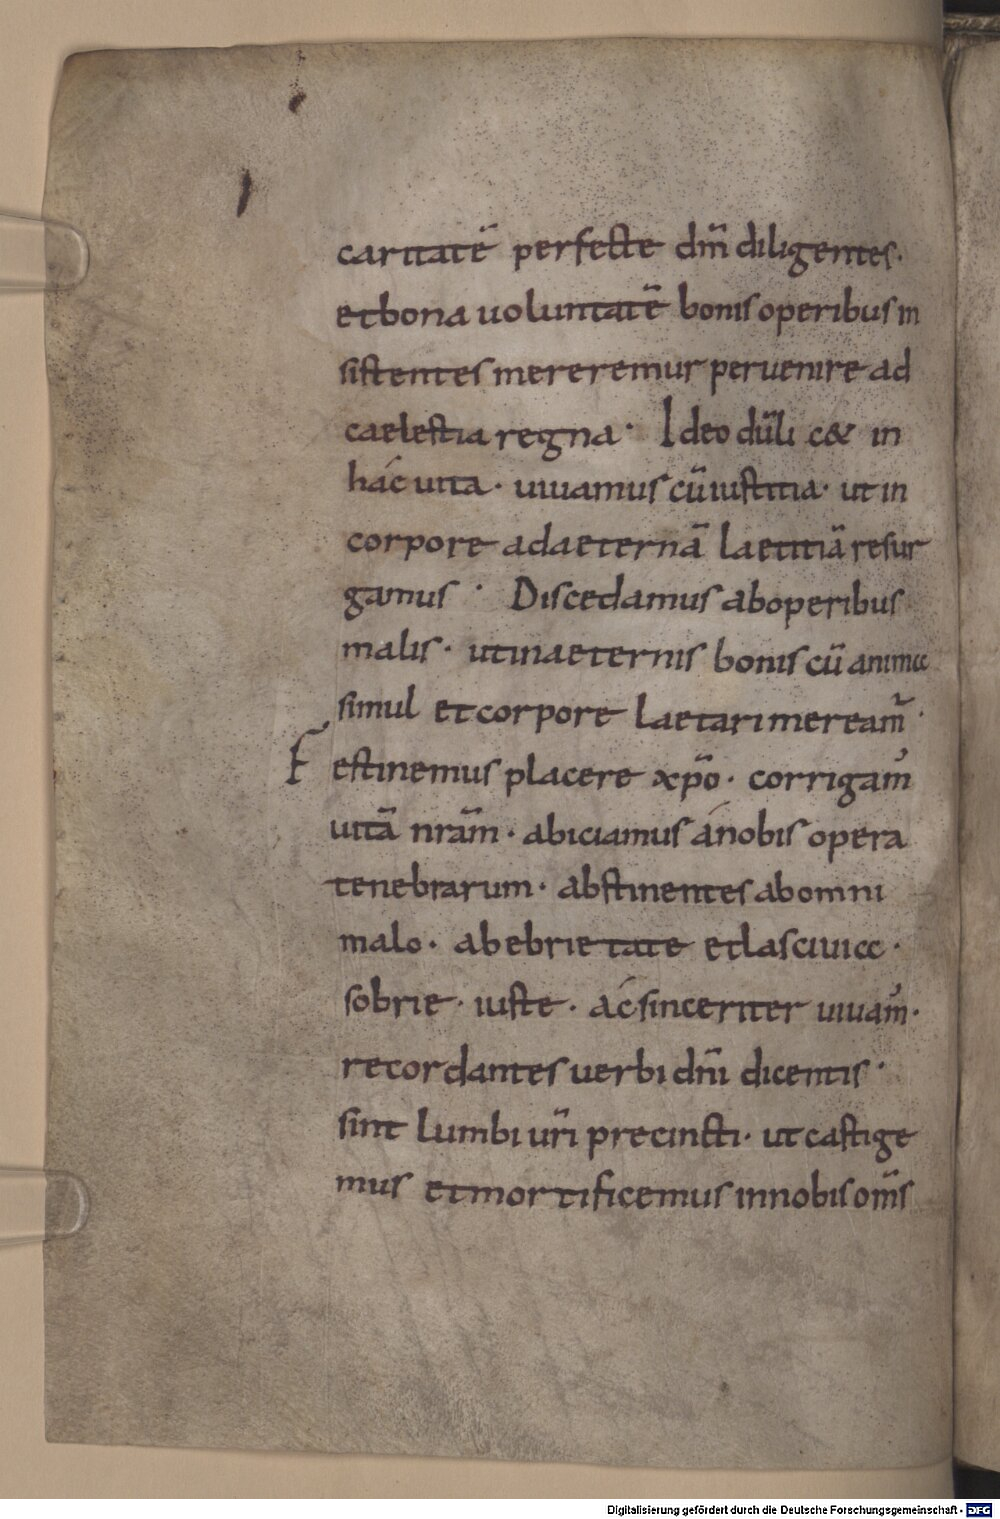 caritatē perfecte dm̄ diligentes·
et bona uoluntatē bonis operibus in
sistentes mereremur peruenire ad
caelestia regna· Ideo dūli c& in
hác uita· uiuamus cū iustitia· ut in
corpore ad aeternā laetitiā resur
gamus· Discedamus ab operibus
malis· ut in aeternis bonis cū anima
simul et corpore laetari meream̄·
Festinemus placere xp̄o· corrigam̄
uitā nrām· abiciamus á nobis opera
tenebrarum· abstinentes ab omni
malo· ab ebrietate et lasciuia·
sobrie· iuste· ác sinceriter uiuam̄·
recordantes uerbi dn̄i dicentis·
sint lumbi ur̄i precincti· ut castige
mus et mortificemus in nobis om̄s
Digitalisierung gefördert durch die Deutsche Forschungsgemeinschaft - DFG